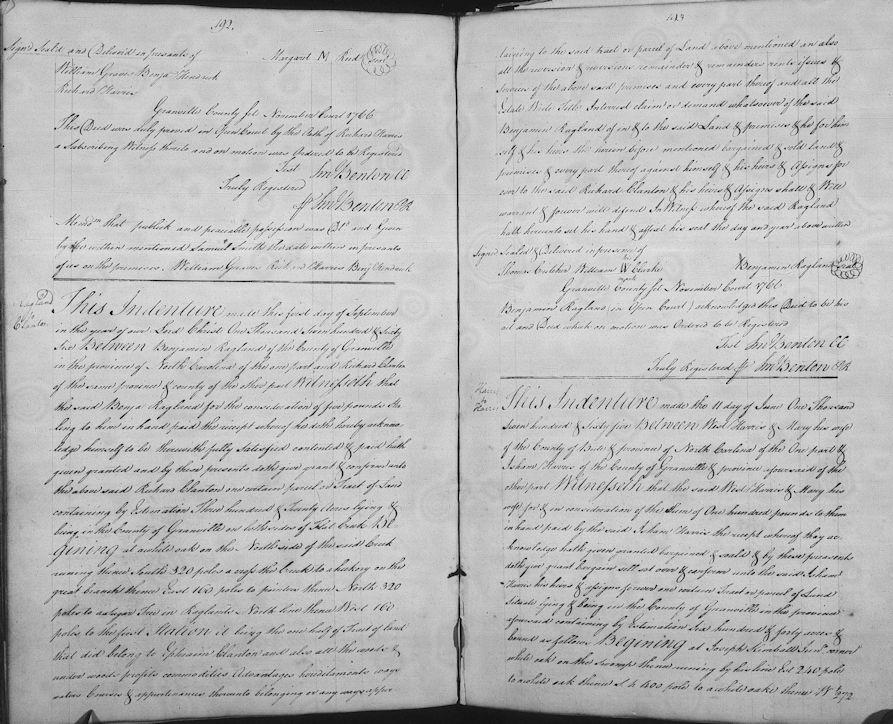 192.
Sign'd Seald and Deliverd in presants of
Margaret M Reid
Seal
William Graves Benja Kendrick
Richard Harris
Granville County sst November Court 1766
This Deed was duly proved in Open Court by the Oath of Richard Harris
a Subscribing Witness thereto and on motion was Ordered to be Registered
Test Jno Benton CC
Truly Registered
Jno Benton PR
Memdm that publick and peaceable possession was and Given
by the within mentioned Samuel Smith the date within in presants
of us on the premises. William Graves Richard Harris Benj Kendrick
Ragland
to
Clanton
This Indenture made this first day of September
in the year of our Lord Christ One Thousand Seven hundred & Sixty
Six Between Benjamin Ragland of the County of Granville
in the province of North Carolina of the one part and Richard Clanton
of the same province & county of the other part Witnesseth that
the said Benja Ragland for the consideration of five pounds Ste
ling to him in hand paid the receipt whereof he doth hereby acknow
ledge himself to be therewith fully Satisfied contented & paid hath
given granted and by these presents doth give grant & confirm unto
the above said Richard Clanton one certain parcel or Tract of Land
containing by Estimation Three hundred & Twenty Acres lying &
being in the County of Granville on both sides of Creek Be
gining at a white oak on the North side of the said Creek
runing thence South 320 poles a cross the Creek to a hickory on the
great branch thence East 160 poles to pointers thence North 320
poles to a Sugar Tree in Raglands North line thence West 160
poles to the first Station it being the one half of Tract of land
that did belong to Ephraim Clanton and also all the woods &
under woods profits commodities Advantages hereditaments ways
waters Courses & appurtenances thereunto belonging or any ways apper
193
taining to the said tract or parcel of Land above mentioned an also
all the reversion & reversions remainder & remainders rents issues &
Services of the above said premises and every part thereof and all the
Estate Write Title Interrest claim or demand whatsoever of the said
Benjamin Ragland of in & to the said Land & premises & he for him
self & his heirs the herein before mentioned bargained & sold land &
premises & every part thereof against himself & his heirs & Assigns for
ever to the said Richard Clanton & his heirs & Assigns shall & Will
warrant & forever will defend In Witness whereof the said Ragland
hath hereunto set his hand & affixt his seal the day and year above written
Sign'd Sealed & Delivered in presents of
Thomas Critcher William W Clarke
his
mark
Benjamin Ragland
Seal
Granville County sst November Court 1766
Benjamin Ragland (in Open Court) acknowledged this Deed to be his
act and Deed which on motion was Ordered to be Registered
Test Jno Benton CC
Truly Registered Jno Benton PR
Harris
to
Harris
This Indenture made the 11 day of June One Thousand
Seven hundred & Sixty five Between West Harris & Mary his wife
of the County of Bute & province of North Carolina of the One part &
Isham Harris of the County of Granville & province aforesaid of the
other part Witnesseth that the said West Harris & Mary his
wife for & in consideration of the Sum of One hundred pounds to them
in hand paid by the said Isham Harris the recept whereof they ac
knowledge hath given granted bargained & sould & by these presents
doth give grant bargain sell set over & confirm unto the said Isham
Harris his heirs & assigns forever one certain Tract or parcel of Land
Situate lying & being in the County of Granville in the province
aforesaid containing by Estimation Six hundred & forty acres &
bound as follows Begining at Joseph Kimball Senr corner
white oak on the Swamp thence runing by his line Est 240 poles
to a white oak thence S 400 poles to a white oake thence Wt 272